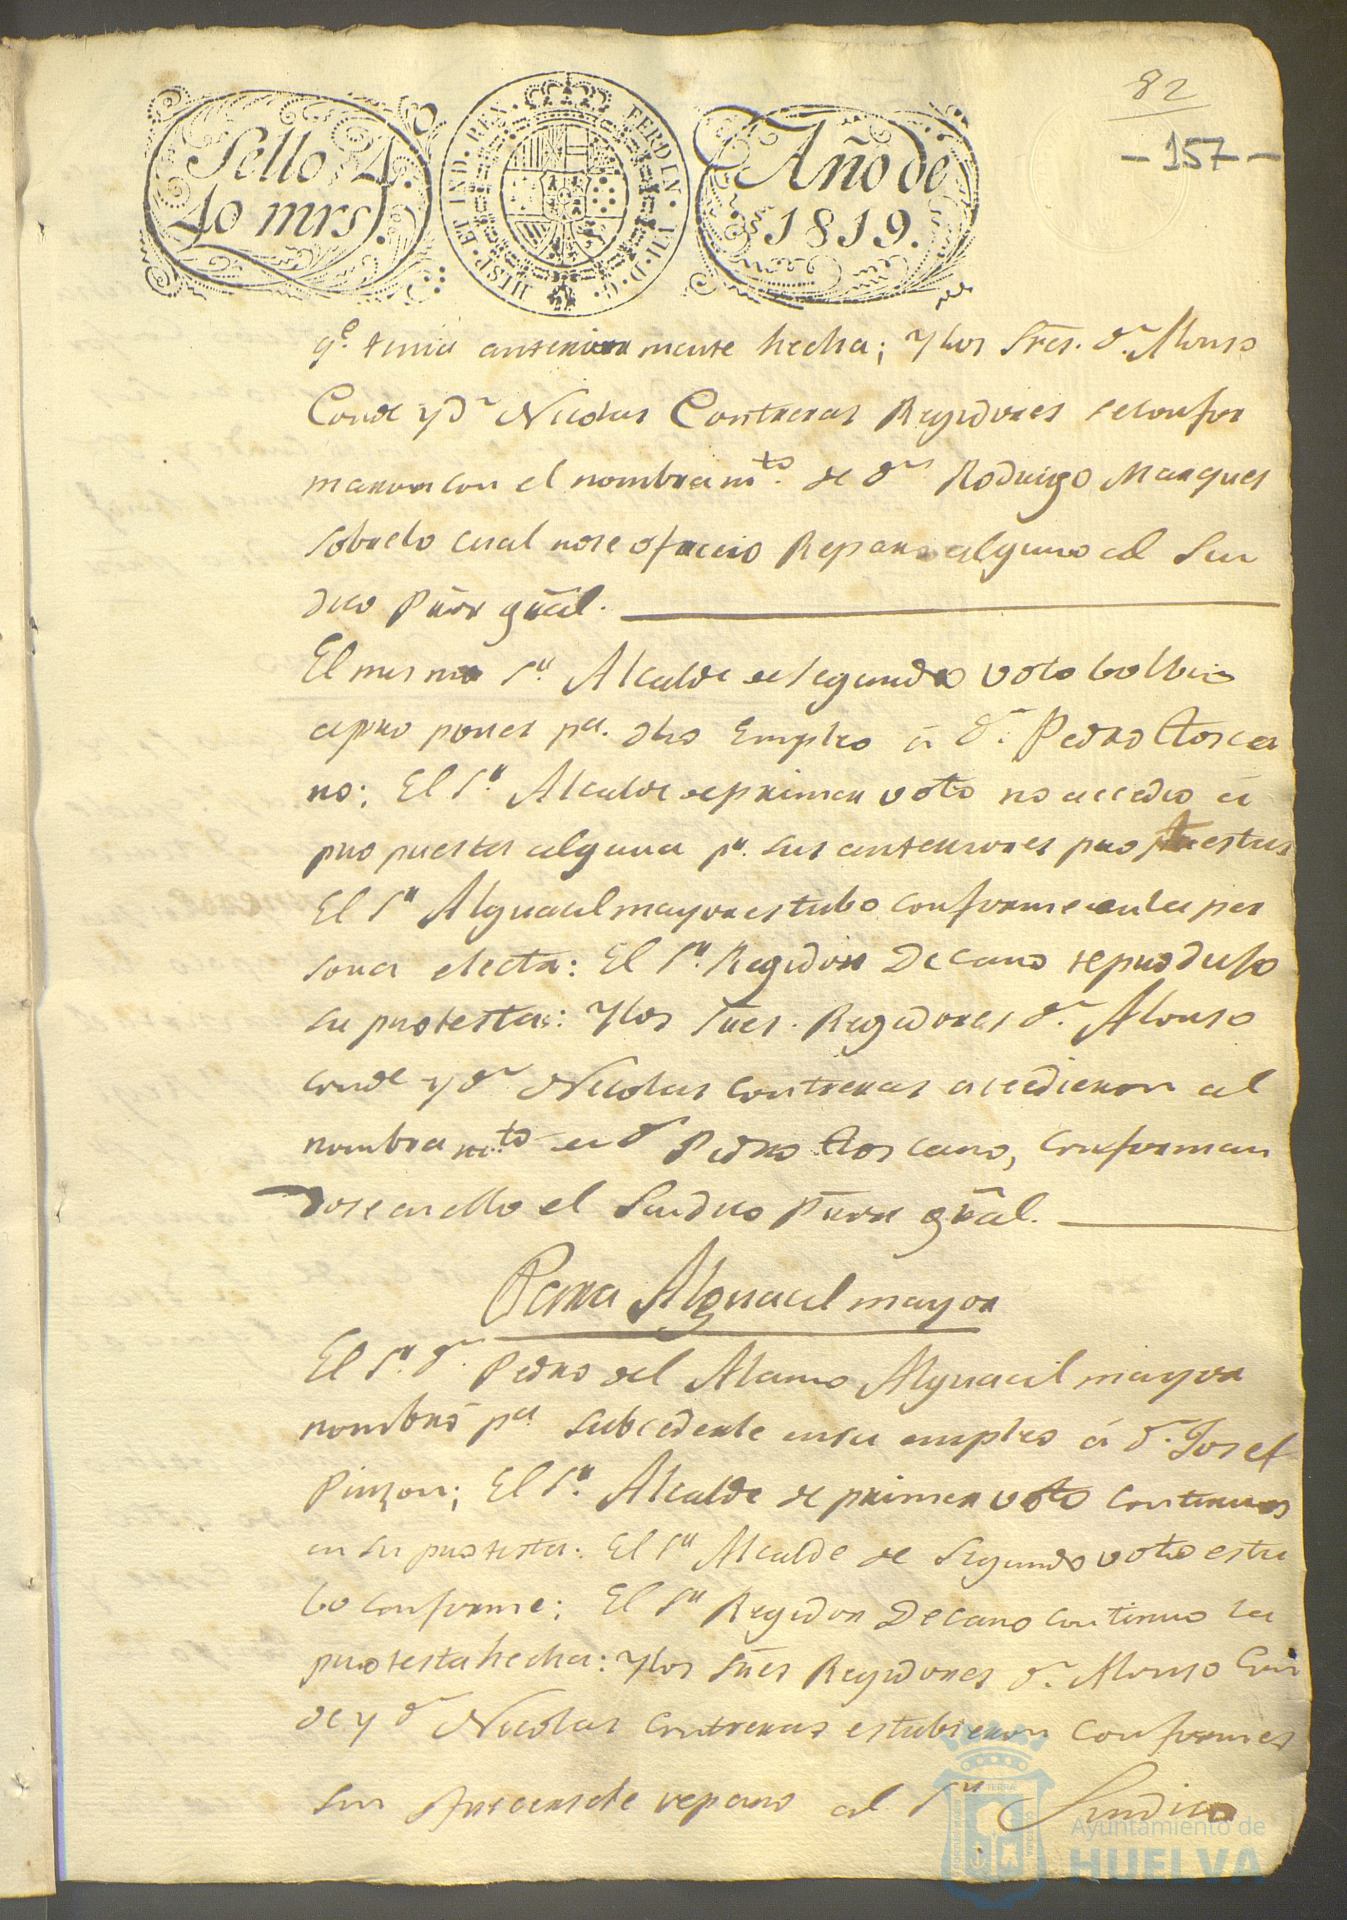 82
-157-
Sello 4.
40 mrs.
HISP. ET IND. REX. FERDIN. VII. D. G.
Año de
1819.
q.e tenia anteriormente hecha; y los Sres. d.n Alonso
Conde y d.n Nicolas Contreras Regidores se confor
maron con el nombram.to de d.n Rodrigo Marques
sobre lo cual no se ofrecio Reparo alguno al Sin
dico Pñror gñal.
El mismo S.r Alcalde de segundo voto bolbio
a proponer p.a dho Empleo á d.n Pedro Tosca
no; El S.r Alcalde de primer voto no accedio á
propuesta alguna p.r sus anteriores protestas
El S.r Alguacil mayor estubo conforme en la per
sona electa: El S.r Regidor Decano reprodujo
su protesta: y los Sres. Regidores d.n Alonso
Conde y d.n Nicolas Contreras accedieron al
nombram.to de d.n Pedro Toscano, conforman
dose en ello el Sindico Pñror gñal.
Para Alguacil mayor
El S.r d.n Pedro del Alamo Alguacil mayor
nombró p.a subcederle en su empleo á d.n Josef
Pinzon; El S.r Alcalde de primer voto continuo
en su protesta: El S.r Alcalde de segundo voto estu
bo conforme; El S.r Regidor Decano continuo la
protesta hecha: y los Sres Regidores d.n Alonso Con
de y d.n Nicolas Contreras estubieron conformes
sin ofrecersele reparo al S.r Sindico
Ayuntamiento de
HUELVA